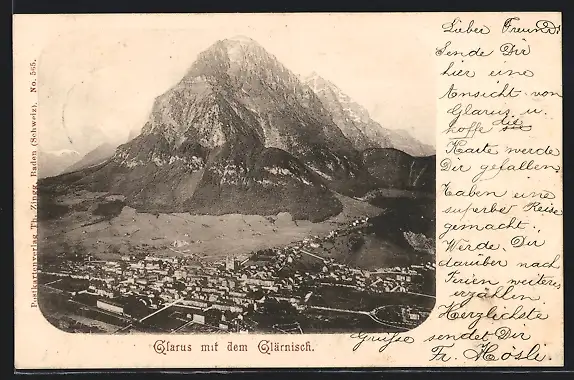 Postkartenverlag Th. Zingg, Baden (Schweiz). No. 565.
Lieber Freund!
Sende Dir
hier eine
Ansicht von
Glarus u.
hoffe die
Karte werde
Dir gefallen,
haben eine
superbe Reise
gemacht.
Werde Dir
darüber nach
Ferien weiteres
erzählen.
Herzlichste
Grüße sendet Dir
Fr. Hösli.
Glarus mit dem Glärnisch.